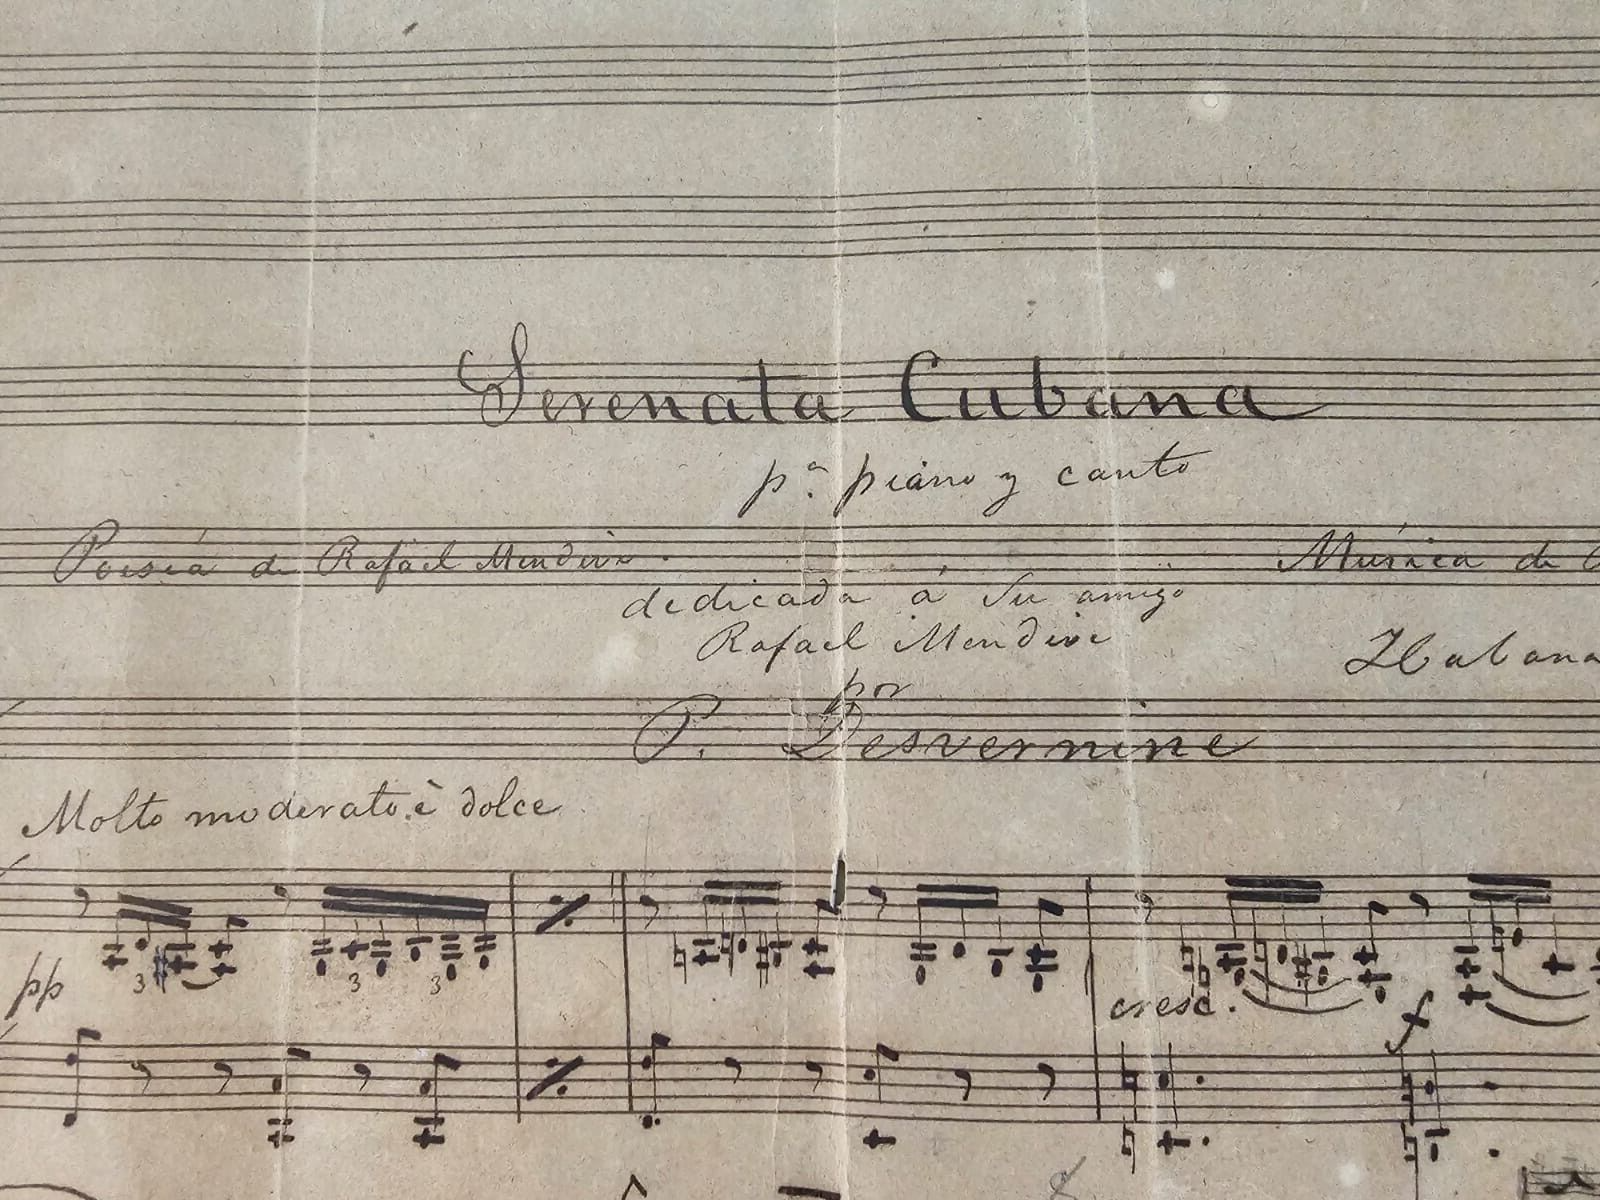 Serenata Cubana
pª piano y canto
Poesía de Rafael Mendive. Música de
dedicada á su amigo
Rafael Mendive
Habana
por
P. Desvernine
Molto moderato è dolce
3 3 3
pp
cresc. f